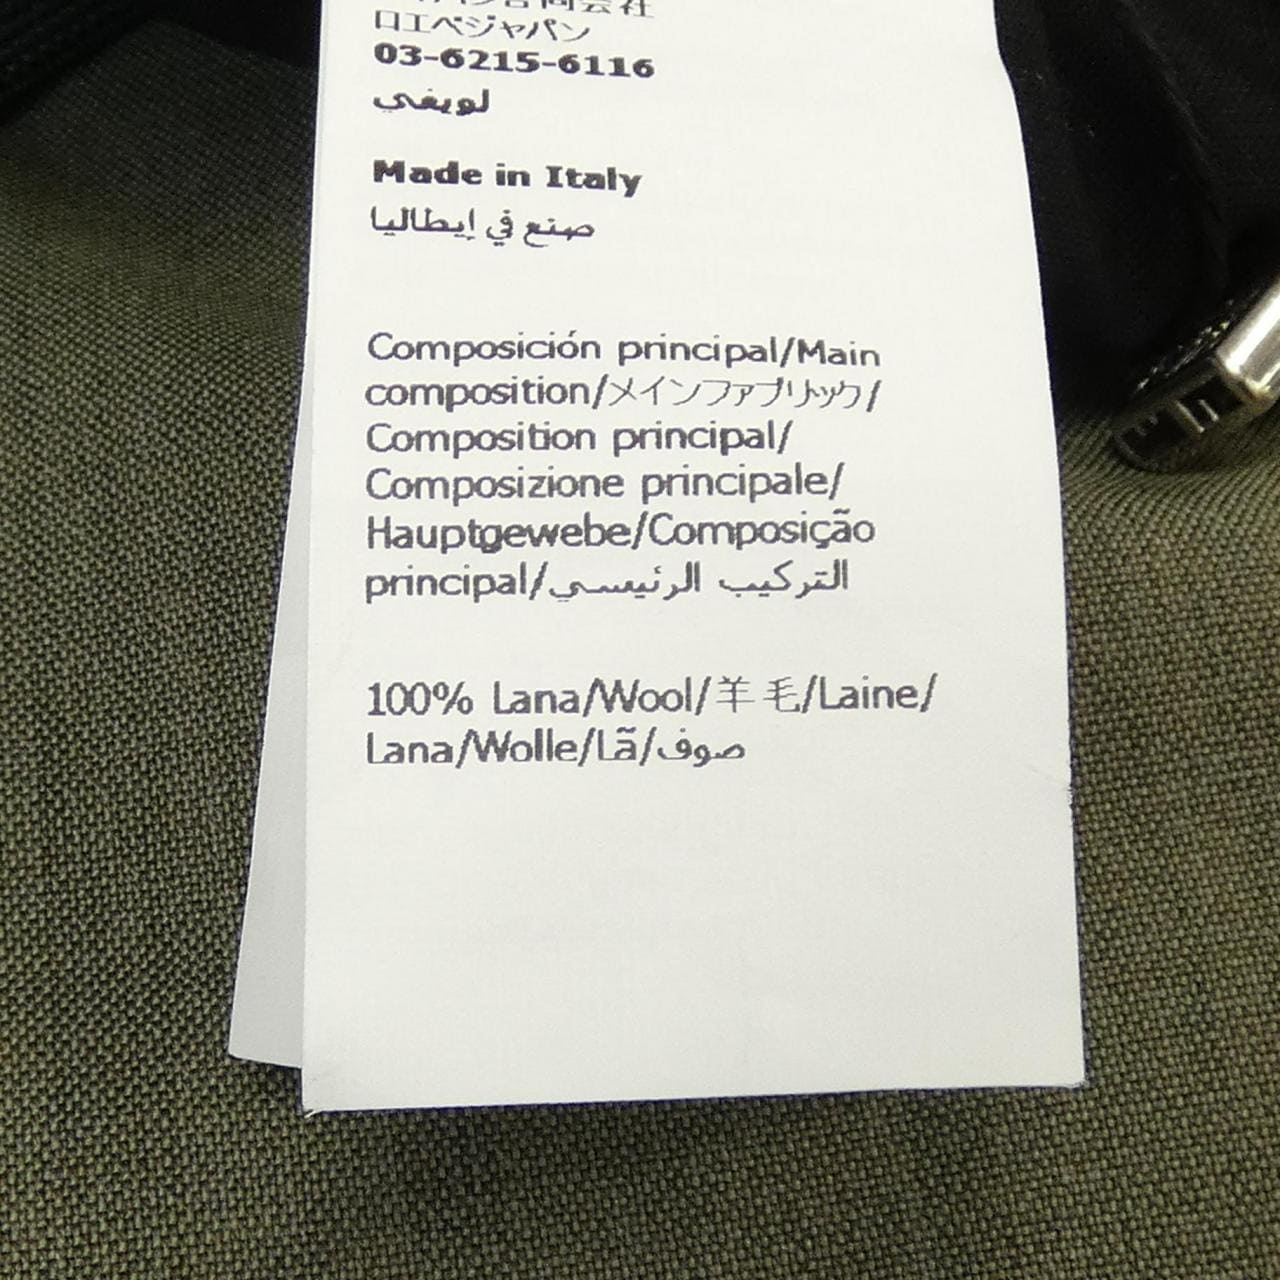 合同会社
ロエベジャパン
03-6215-6116
لويفي
Made in Italy
صنع في إيطاليا
Composición principal/Main
composition/メインファブリック/
Composition principal/
Composizione principale/
Hauptgewebe/Composição
principal/التركيب الرئيسي
100% Lana/Wool/羊毛/Laine/
Lana/Wolle/Lã/صوف